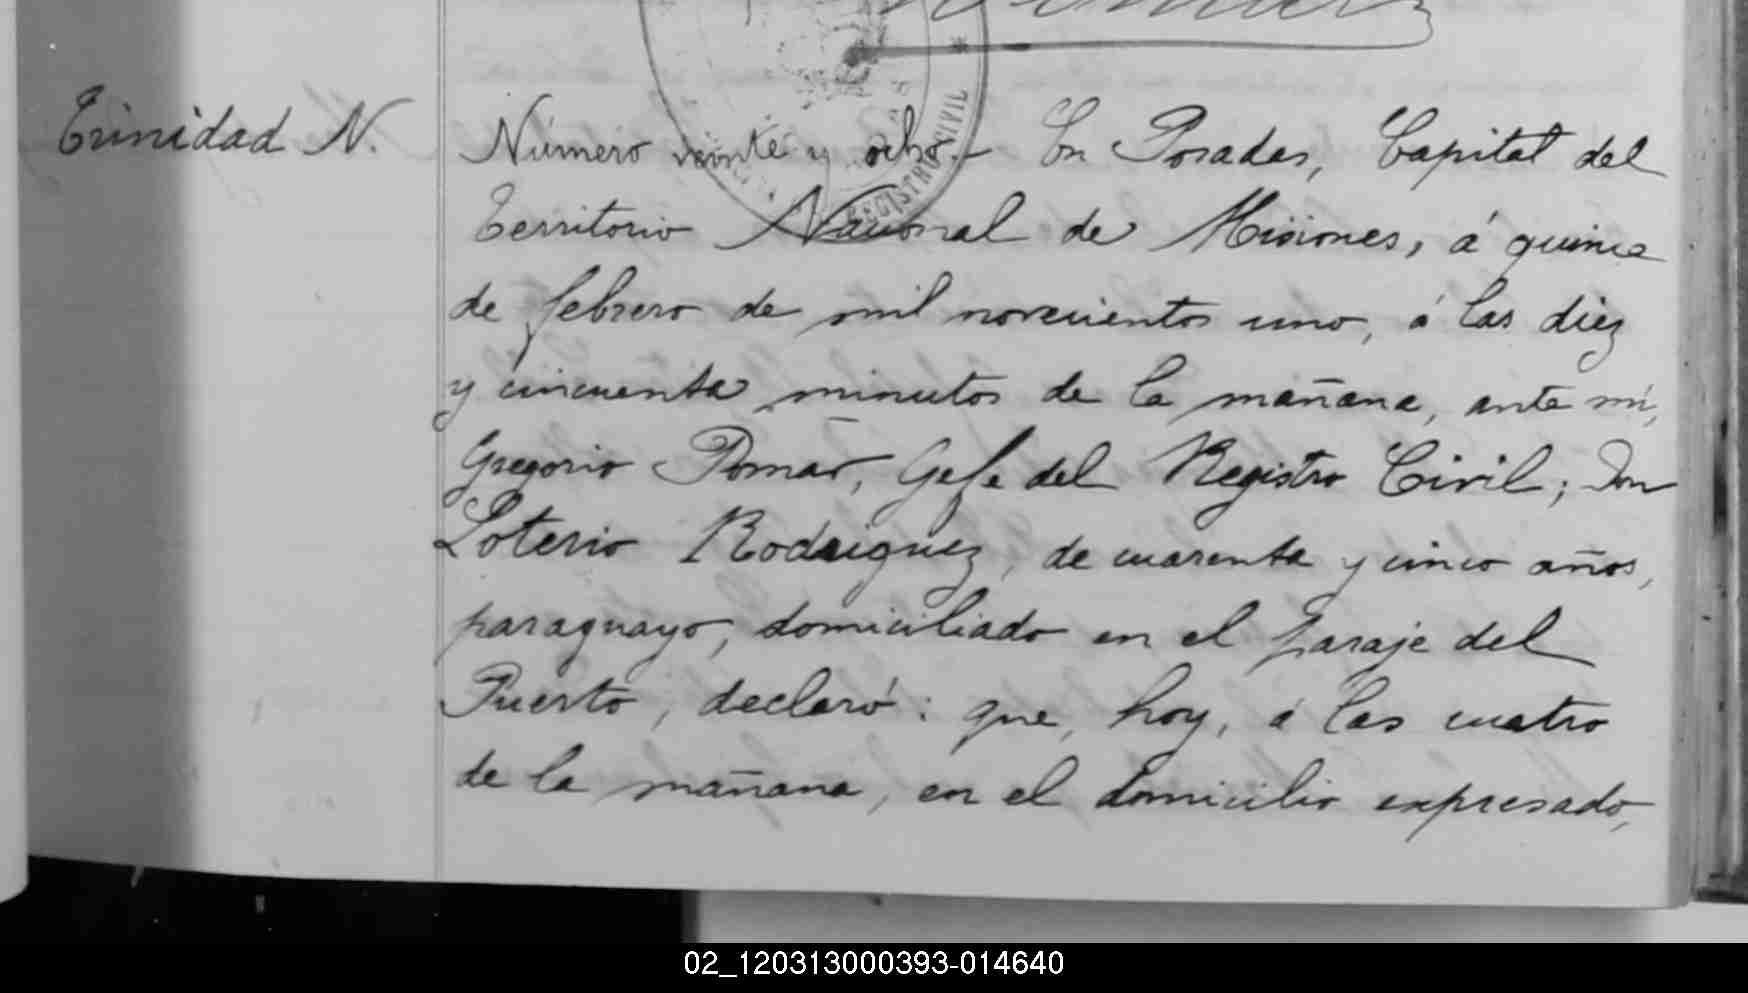 Trinidad N.
Número veinte y ocho.- En Posadas, Capital del
Territorio Nacional de Misiones, á quince
de febrero de mil novecientos uno, á las diez
y cincuenta minutos de la mañana, ante mi,
Gregorio Pomar, Gefe del Registro Civil; Don
Loterio Rodriguez, de cuarenta y cinco años,
paraguayo, domiciliado en el paraje del
Puerto, declaró: que, hoy, á las cuatro
de la mañana, en el domicilio expresado,
REGISTRO CIVIL
02_120313000393-014640